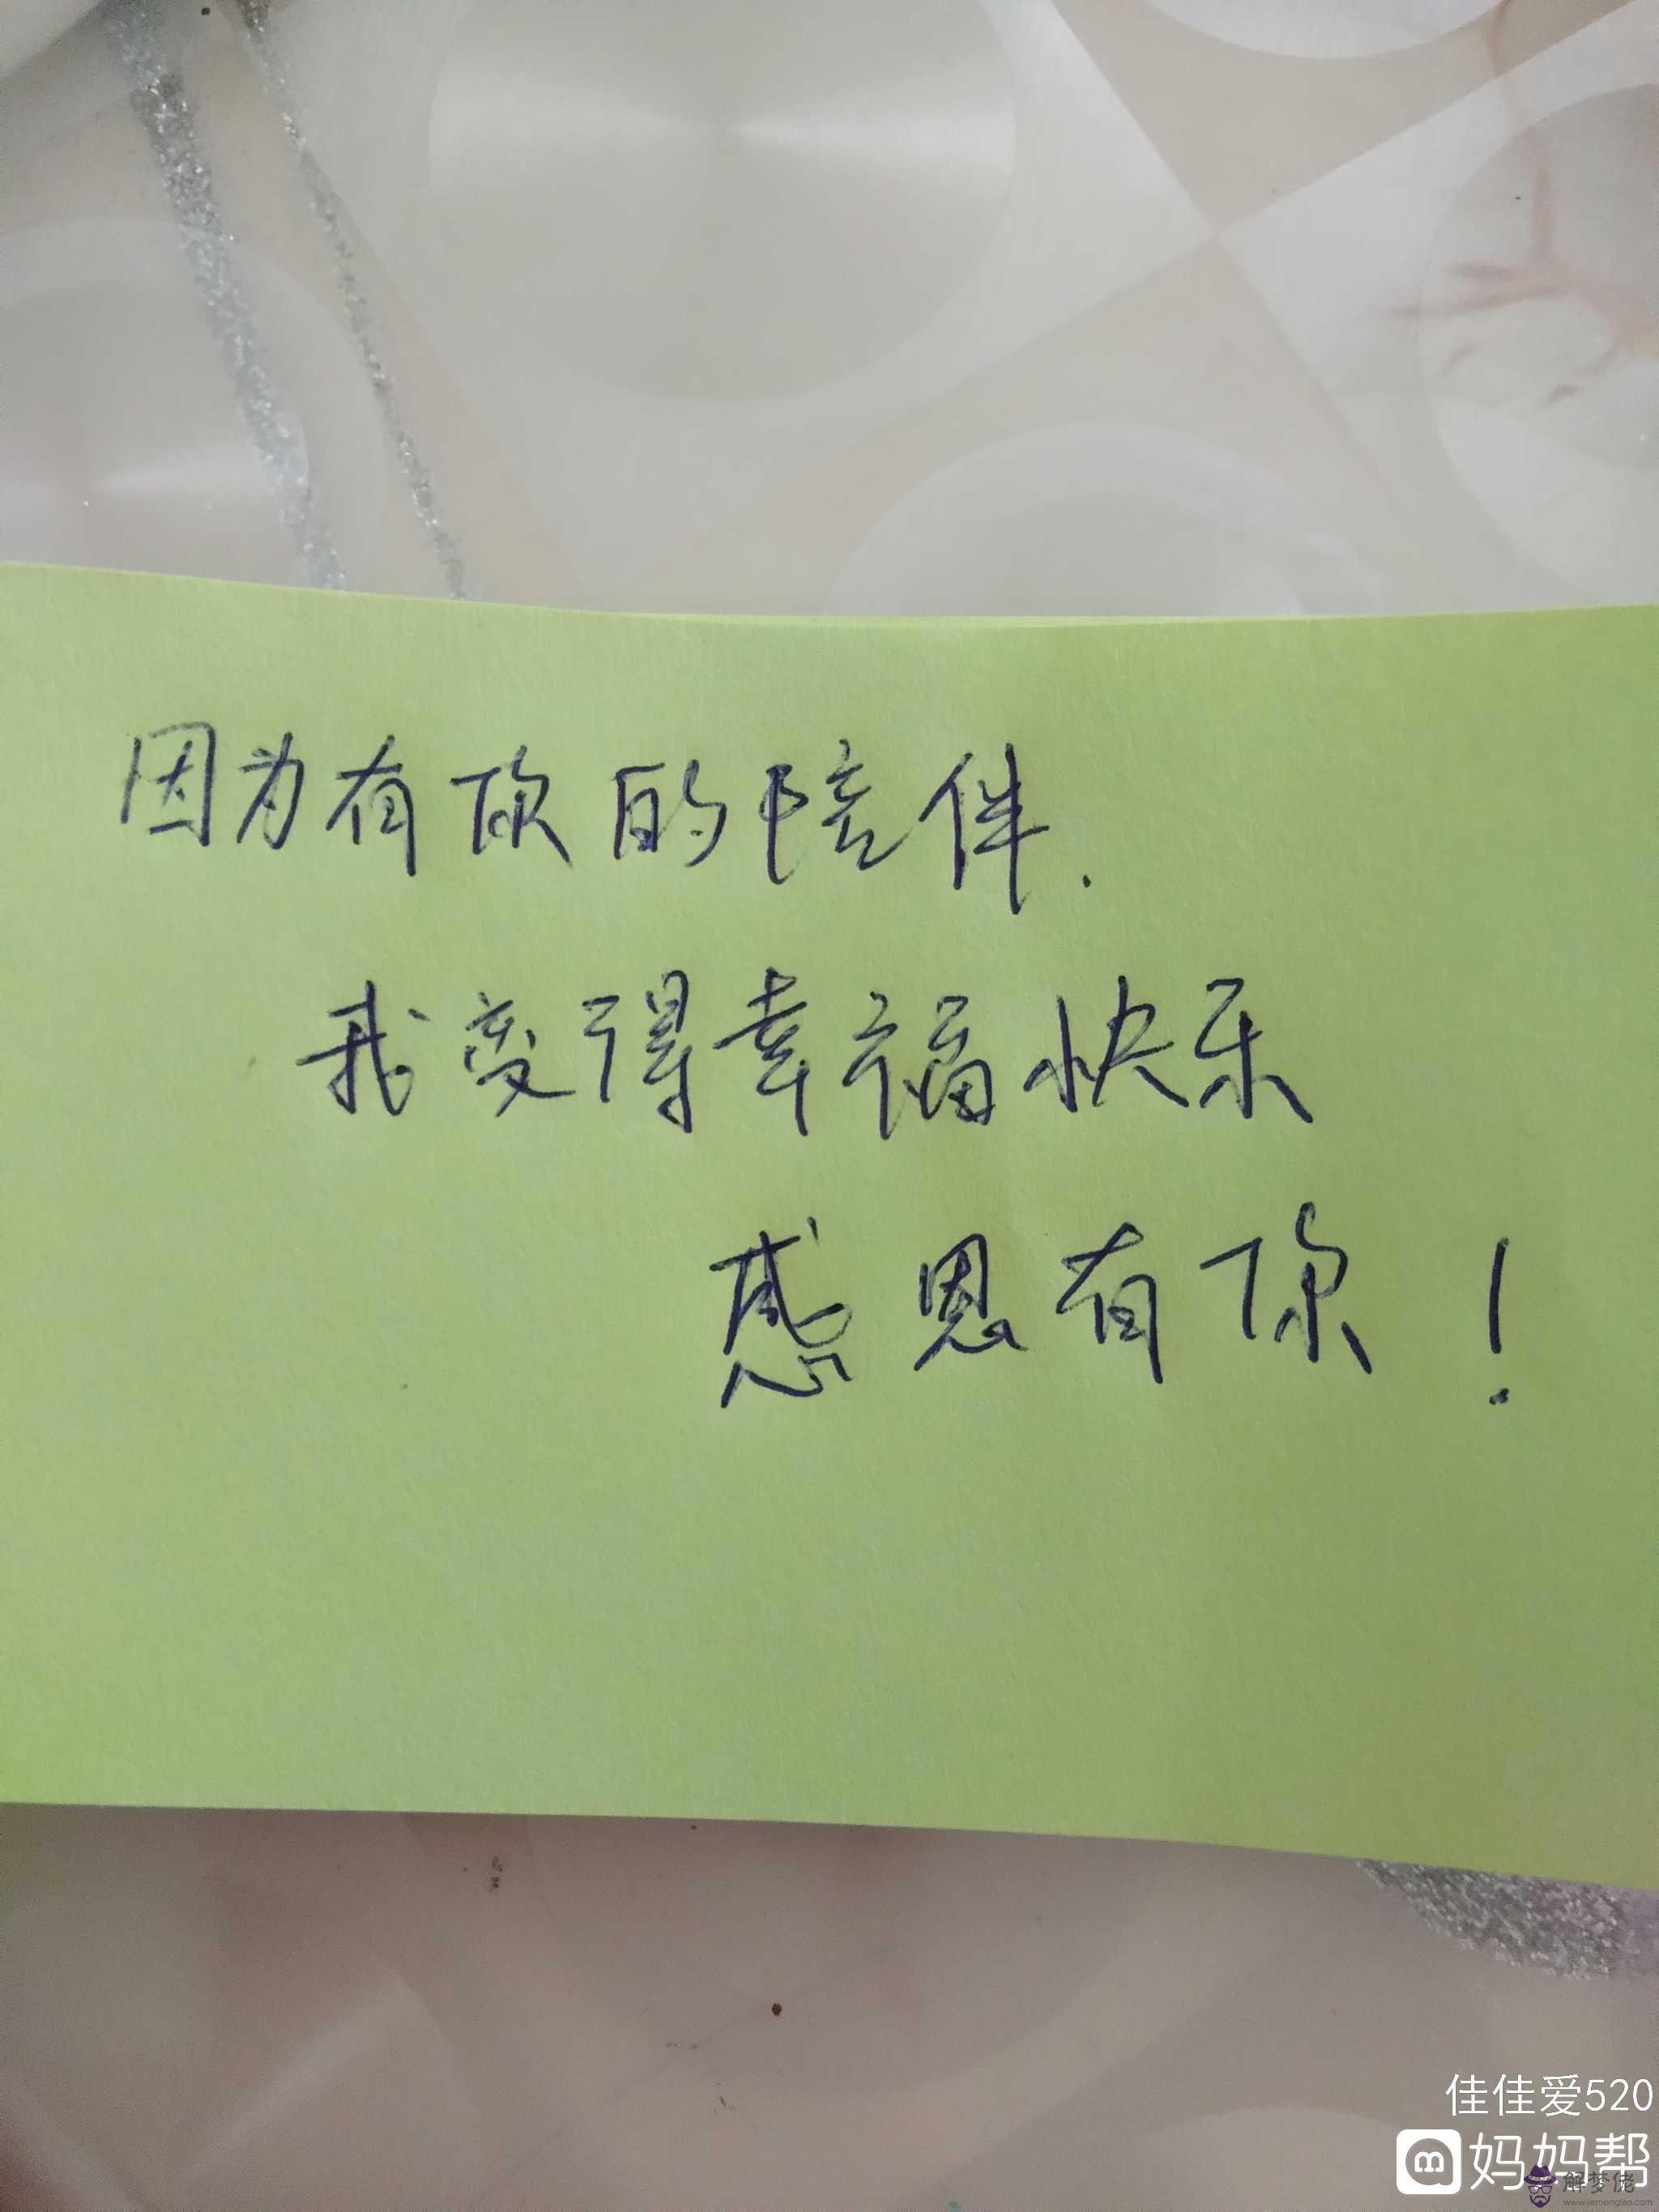 因为有你的陪伴.
我变得幸福快乐
感恩有你！
佳佳爱520
妈妈帮
解梦佬
www.jiemenglao.com